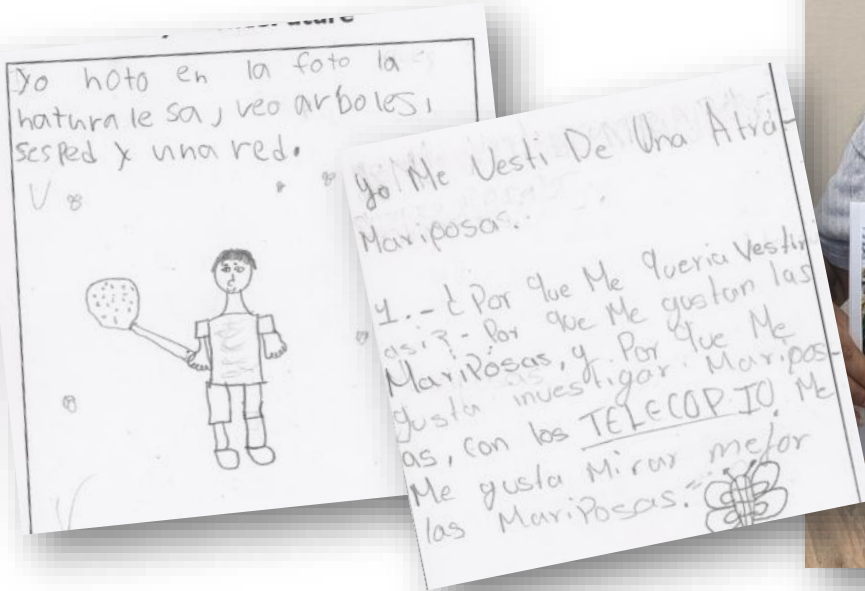 Yo noto en la foto la
naturalesa, veo arboles,
sesped y una red.
Yo Me Vesti De Una Atra-
Mariposas.
1.- ¿Por que Me queria Vestir
asi?- Por que Me gustan las
Mariposas, y Por que Me
gusta investigar Maripos-
as, con los TELECOPIO. Me
Me gusta Mirar mejor
las Mariposas.